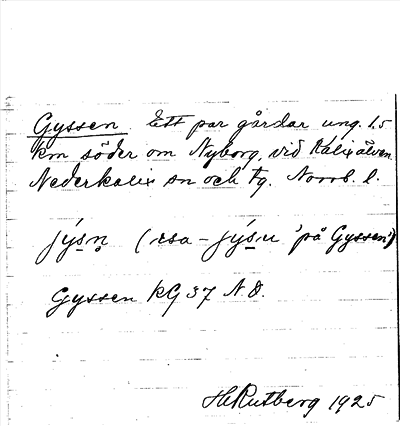 Gyssen Ett par gårdar ung. 1,5
km söder om Nyborg, vid Kalixälven.
Nederkalix sn och tg. Norrb. l.
jýsn̥ (isa - jýsu 'på Gyssen')
Gyssen KG 37 N.O.
H Rutberg 1925